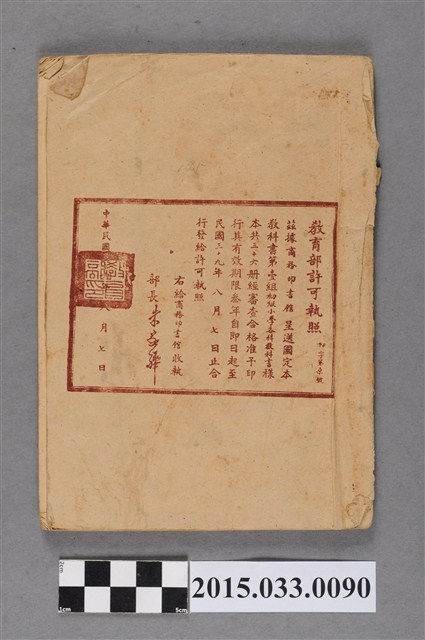 教育部許可執照
茲據商務印書館呈送國定本
教科書第壹組初級小學各科教科書樣
本共三十六冊經審查合格准予印
行具有效期限叁年自卽日起至
民國三十九年八月七日止合
行發給許可執照
右給商務印書館收執
部長朱家驊
中華民國
八月七日
2cm
1cm
5cm
2015.033.0090